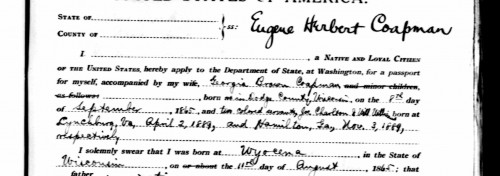 STATE OF
ss: Eugene Herbert Coapman
COUNTY OF
I, a NATIVE AND LOYAL CITIZEN
OF THE UNITED STATES, hereby apply to the Department of State, at Washington, for a passport
for myself, accompanied by my wife, Georgia Brown Coapman and minor children,
as follows: born in Dodge County, Wisconsin, on the 8th day
of September, 1865, and two colored servants, Joe Charlton & Will born
Lynchburg, Va, April 2, 1889, and Hamilton, Ga, Nov. 3, 1889,
respectively
I solemnly swear that I was born at Wyocena in the State
of Wisconsin, on or about the 11th day of August, that
father